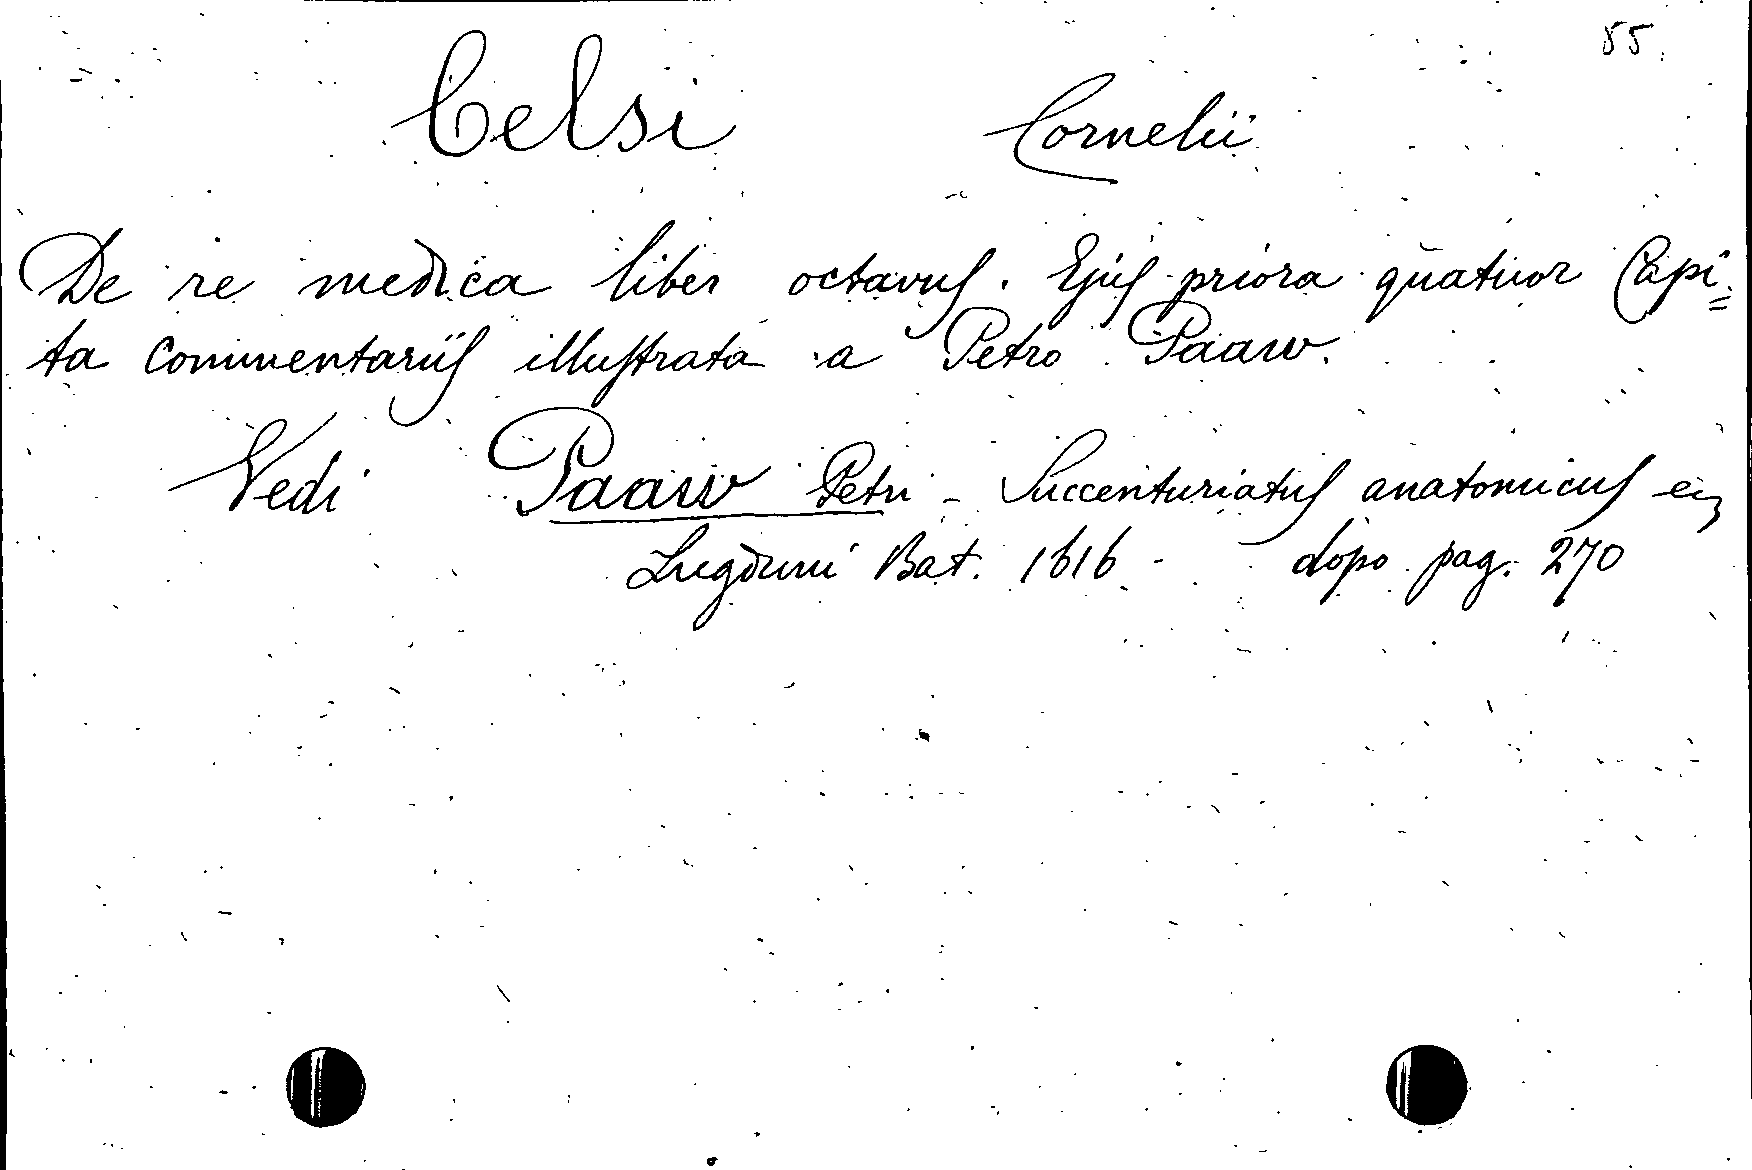 55.
Celsi Cornelii
De re medica liber octavus. Ejus priora quatuor Capi=
ta Commentariis illustrata a Petro Paaw.
Vedi Paaw Petri - Succenturiatus anatomicus
Lugduni Bat. 1616 - dopo pag. 270